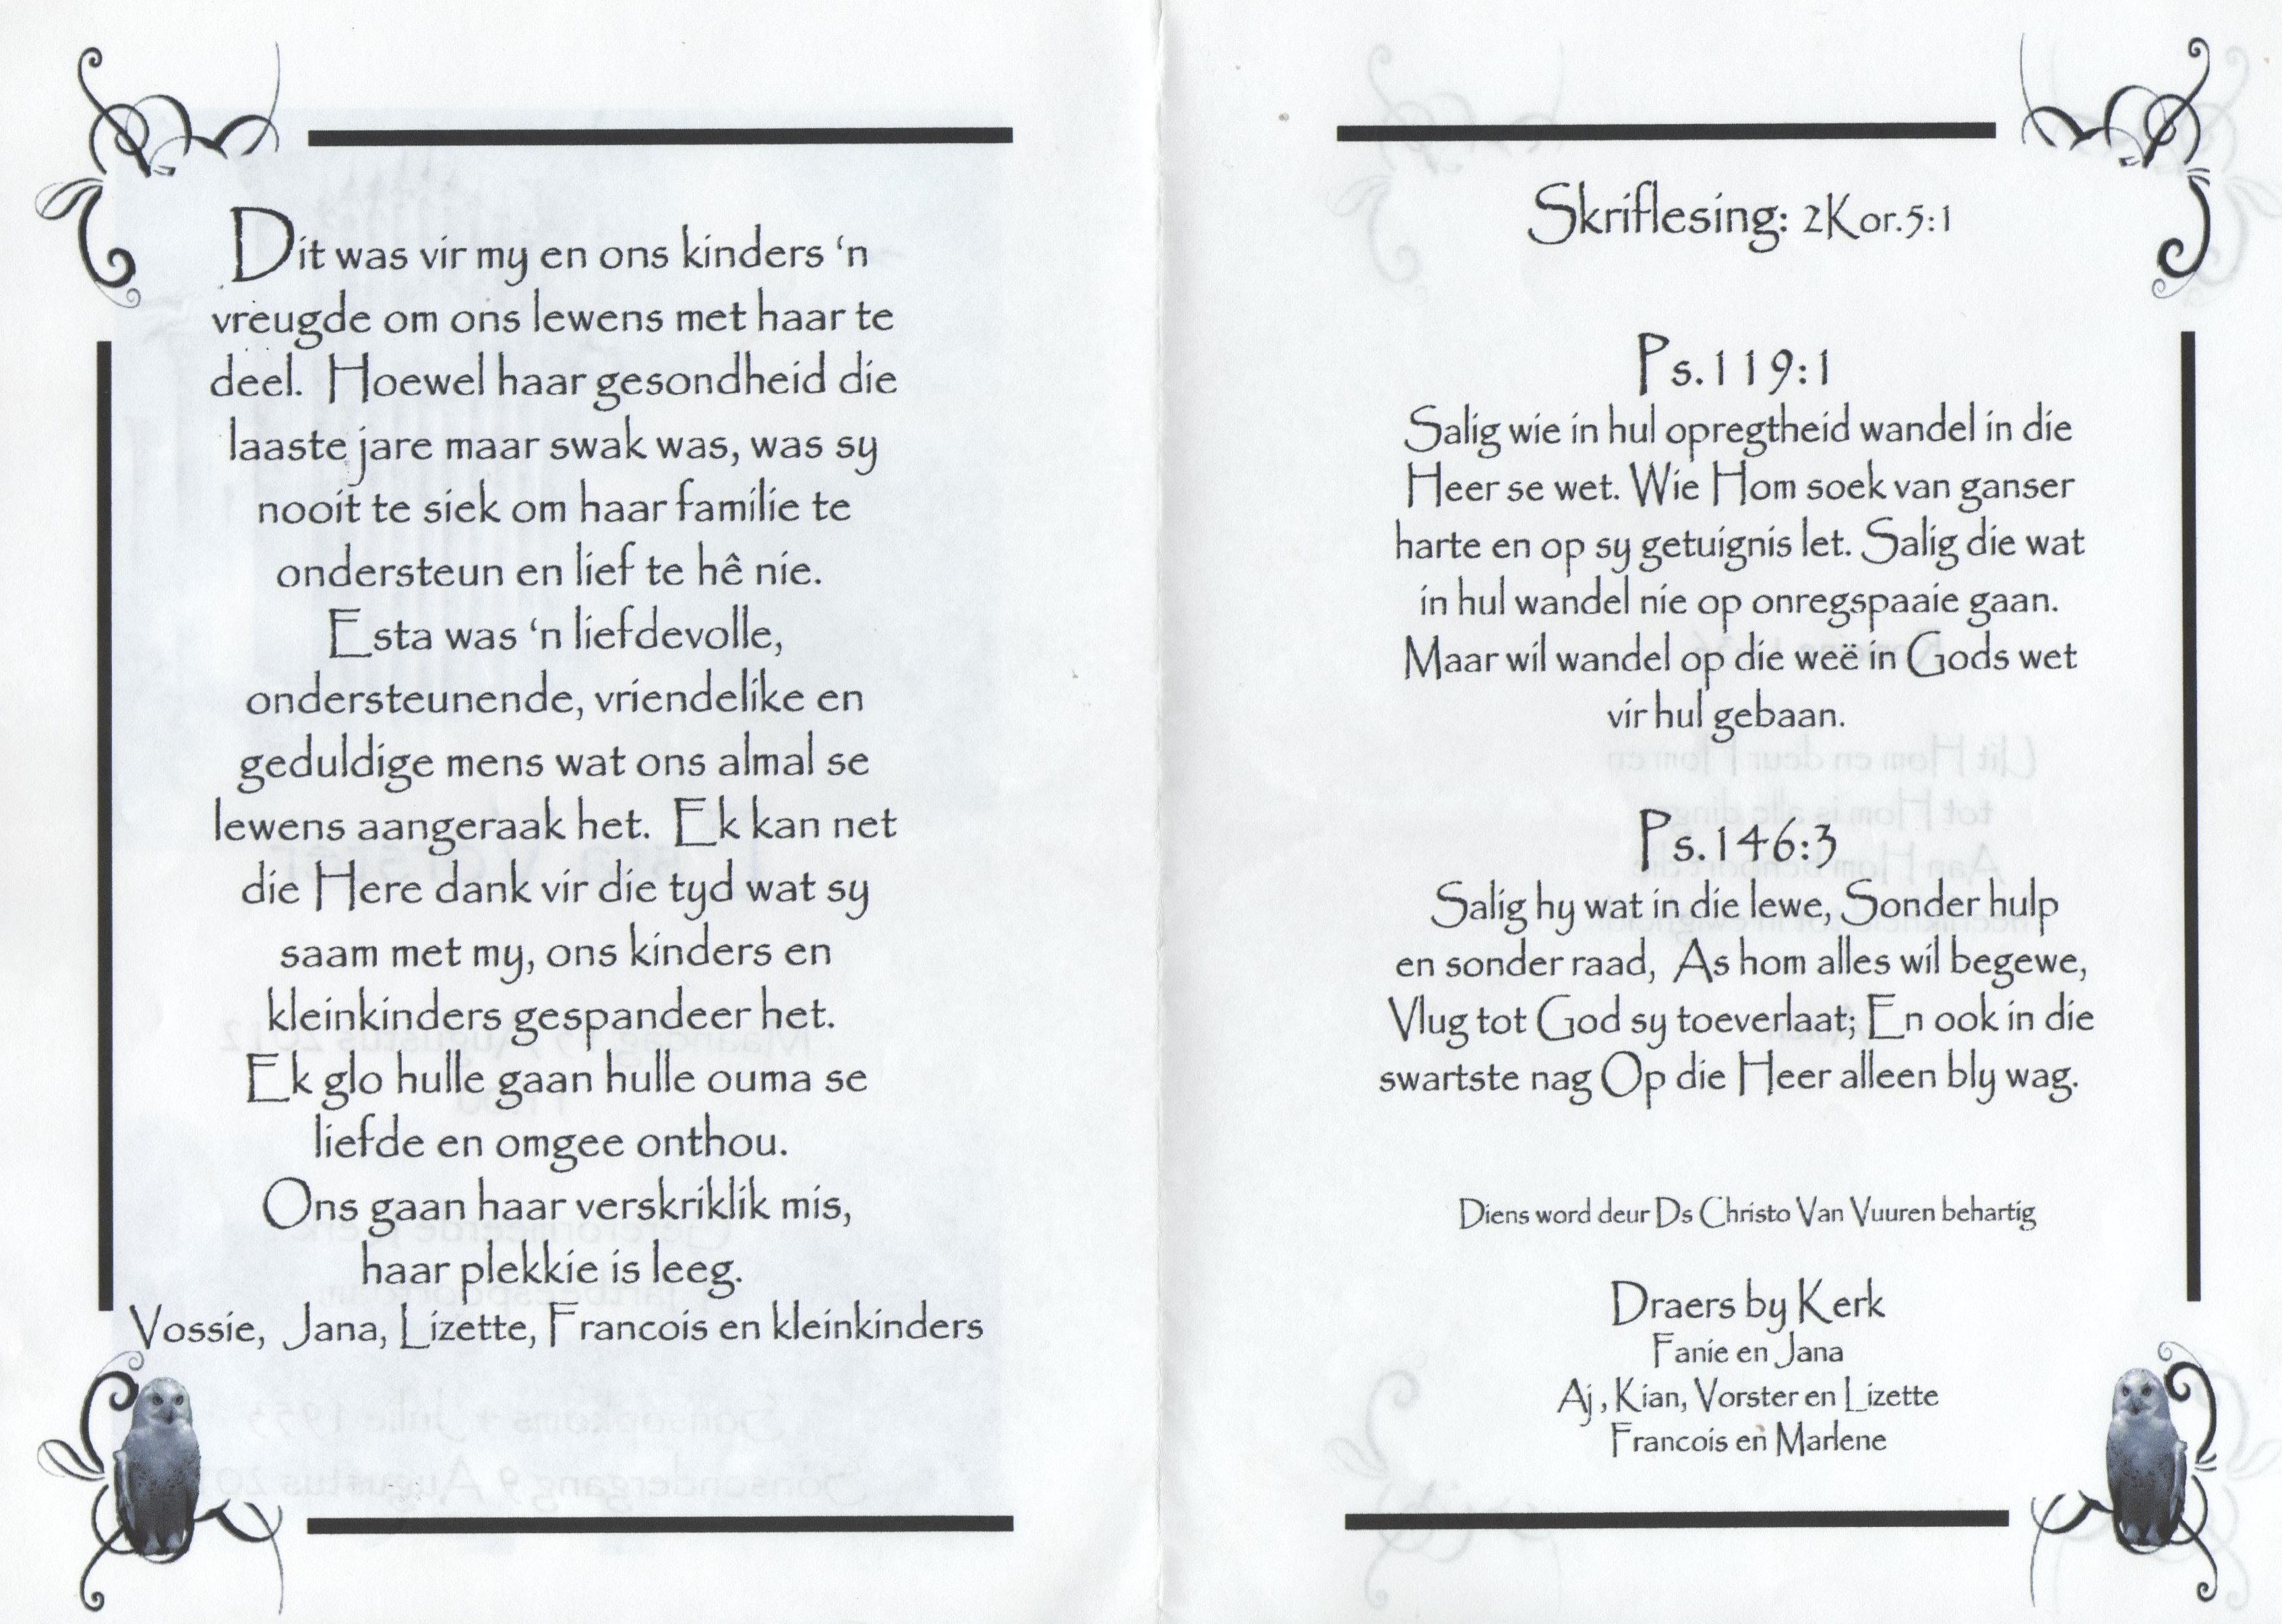 Dit was vir my en ons kinders ‘n
vreugde om ons lewens met haar te
deel. Hoewel haar gesondheid die
laaste jare maar swak was, was sy
nooit te siek om haar familie te
ondersteun en lief te hê nie.
Esta was ‘n liefdevolle,
ondersteunende, vriendelike en
geduldige mens wat ons almal se
lewens aangeraak het. Ek kan net
die Here dank vir die tyd wat sy
saam met my, ons kinders en
kleinkinders gespandeer het.
Ek glo hulle gaan hulle ouma se
liefde en omgee onthou.
Ons gaan haar verskriklik mis,
haar plekkie is leeg.
Vossie, Jana, Lizette, Francois en kleinkinders
Skriflesing: 2Kor.5:1
Ps.119:1
Salig wie in hul opregtheid wandel in die
Heer se wet. Wie Hom soek van ganser
harte en op sy getuignis let. Salig die wat
in hul wandel nie op onregspaaie gaan.
Maar wil wandel op die weë in Gods wet
vir hul gebaan.
Ps.146:3
Salig hy wat in die lewe, Sonder hulp
en sonder raad, As hom alles wil begewe,
Vlug tot God sy toeverlaat; En ook in die
swartste nag Op die Heer alleen bly wag.
Diens word deur Ds Christo Van Vuuren behartig
Draers by Kerk
Fanie en Jana
Aj , Kian, Vorster en Lizette
Francois en Marlene